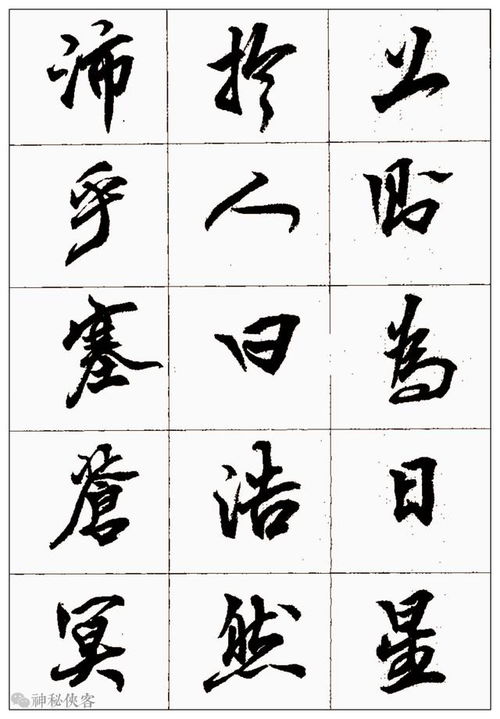 上則為日星
於人曰浩然
沛乎塞蒼冥
神秘侠客